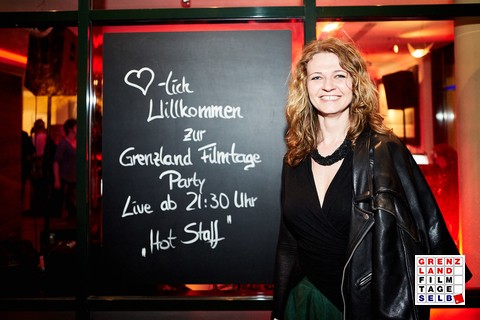 ♡-lich
Willkommen
zur
Grenzland Filmtage
Party
Live ab 21:30 Uhr
„Hot Staff"
GRENZ
LAND
FILM
TAGE
SELB